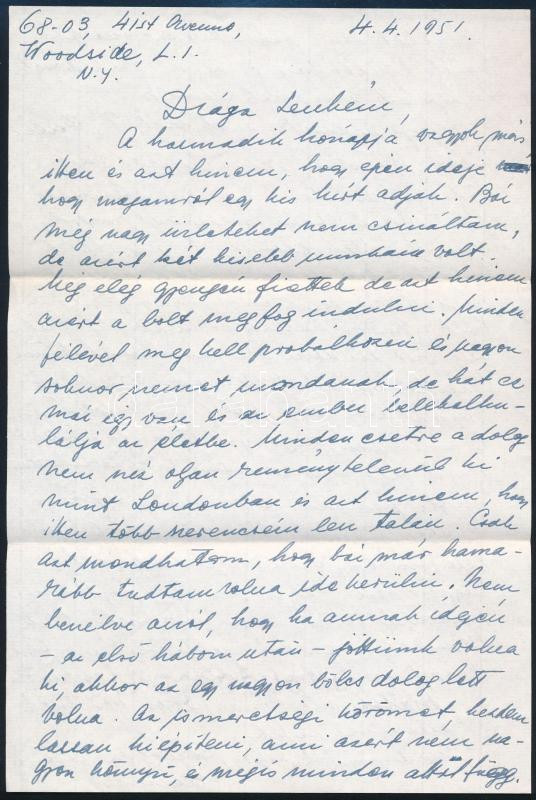 68-03, 41st Avenue, 4.4.1951.
Woodside, L.I.
N.Y.
Drága Lenkém,
A harmadik hónapja vagyok már
itten és azt hiszem, hogy épen ideje
hogy magamról egy kis hírt adjak. Bár
még nagy üzleteket nem csináltam,
de azért két kisebb munkám volt.
Még elég gyengén fizettek de azt hiszem
azért a bolt megfog indulni. Minden
félével meg kell probálkozni és nagyon
sokszor nemet mondanak, de hát ez
már egy van és az ember belekalku-
lálja az életbe. Minden esetre a dolog
nem néz olyan reménytelenül ki
mint Londonban és azt hiszem, hogy
itten több szerencsém lesz talán. Csak
azt mondhatom, hogy bár már hama-
rább tudtam volna ide kerülni. Nem
beszélve arról, hogy ha annak idején
- az első háború után - jöttünk volna
ki, akkor az egy nagyon bölcs dolog lett
volna. Az ismeretségi körömet, kezdem
lassan kiépíteni, ami azért nem na-
gyon könnyű, és mégis minden attól függ.